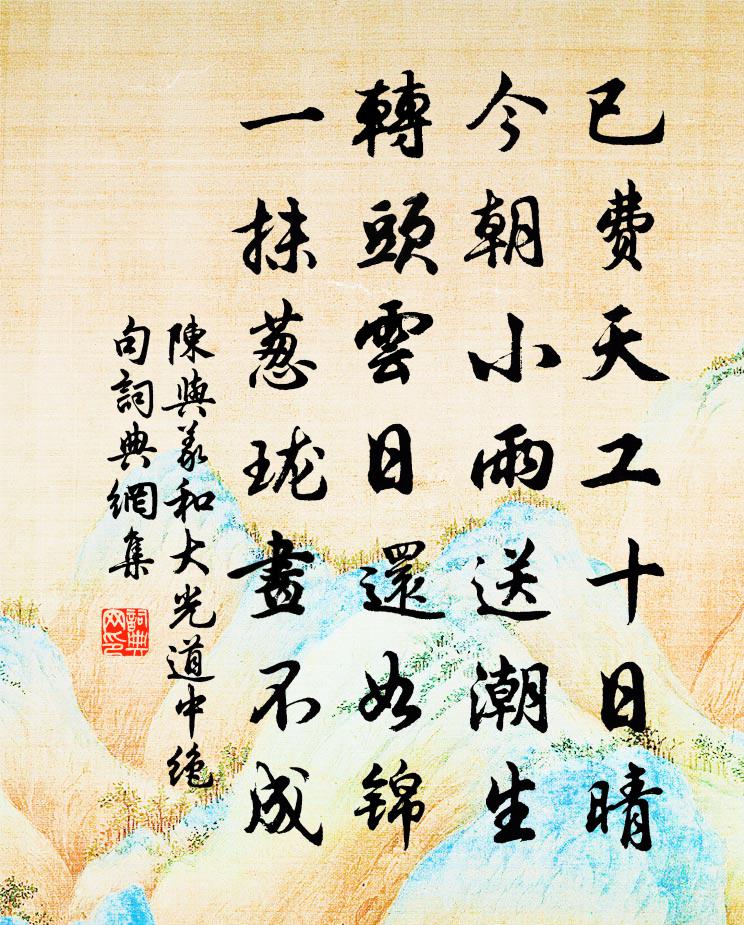 已费天工十日晴
今朝小雨送潮生
轉頭雲日還如锦
一抹葱珑畫不成
陳與义和大光道中绝
句詞典網集
詞典
网印